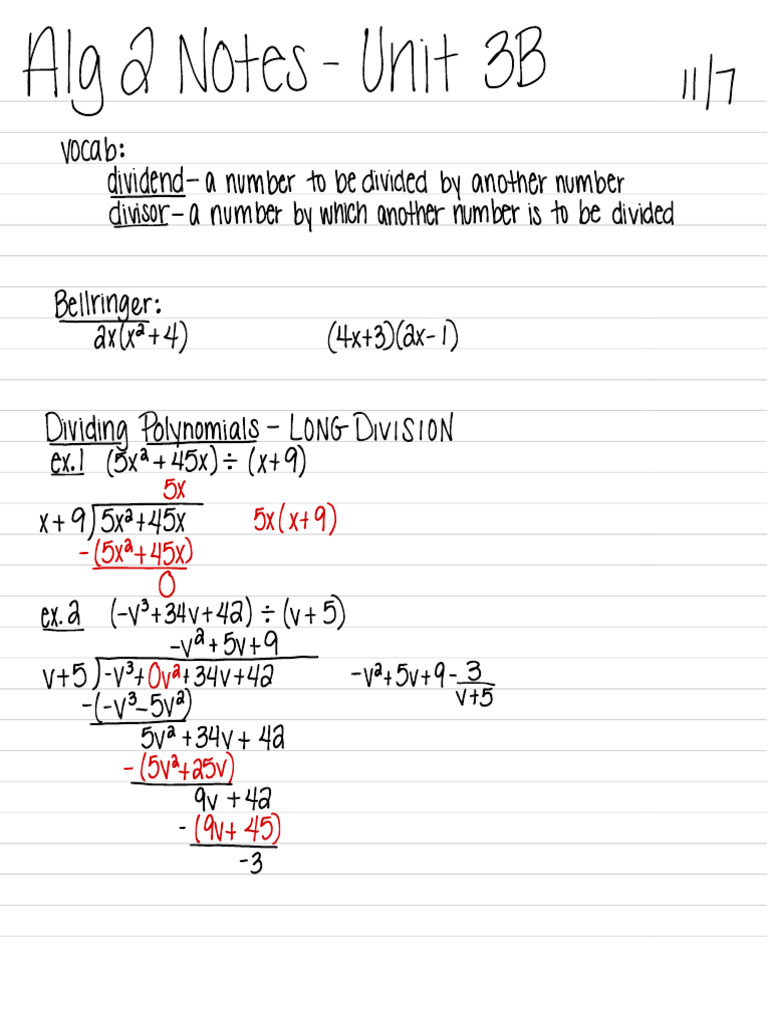 Alg 2 Notes - Unit 3B 11/7
vocab:
dividend - a number to be divided by another number
divisor - a number by which another number is to be divided
Bellringer:
2x(x²+4) (4x+3)(2x-1)
Dividing Polynomials - LONG DIVISION
ex.1 (5x²+45x)÷(x+9)
5x
x+9)5x²+45x 5x(x+9)
-(5x²+45x)
0
ex.2 (-v³+34v+42)÷(v+5)
-v²+5v+9
v+5)-v³+0v²+34v+42 -v²+5v+9-3/(v+5)
-(-v³-5v²)
5v²+34v+42
-(5v²+25v)
9v+42
-(9v+45)
-3